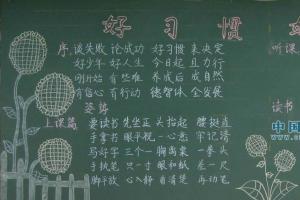 好 习 惯
序: 谈失败 论成功 好习惯 来决定
好少年 好人生 今日起 且力行
刚开始 有些难 养成后 成自然
有信心 有行动 德智体 全发展
上课篇
要读书 先坐正 头抬起 腰挺直
手拿书 眼平视 一心悉 牢记清
写好字 三个一 胸离案 一拳头
手执笔 只一寸 眼和纸 是一尺
脚平放 心入静 再动笔
听课
读书
中国